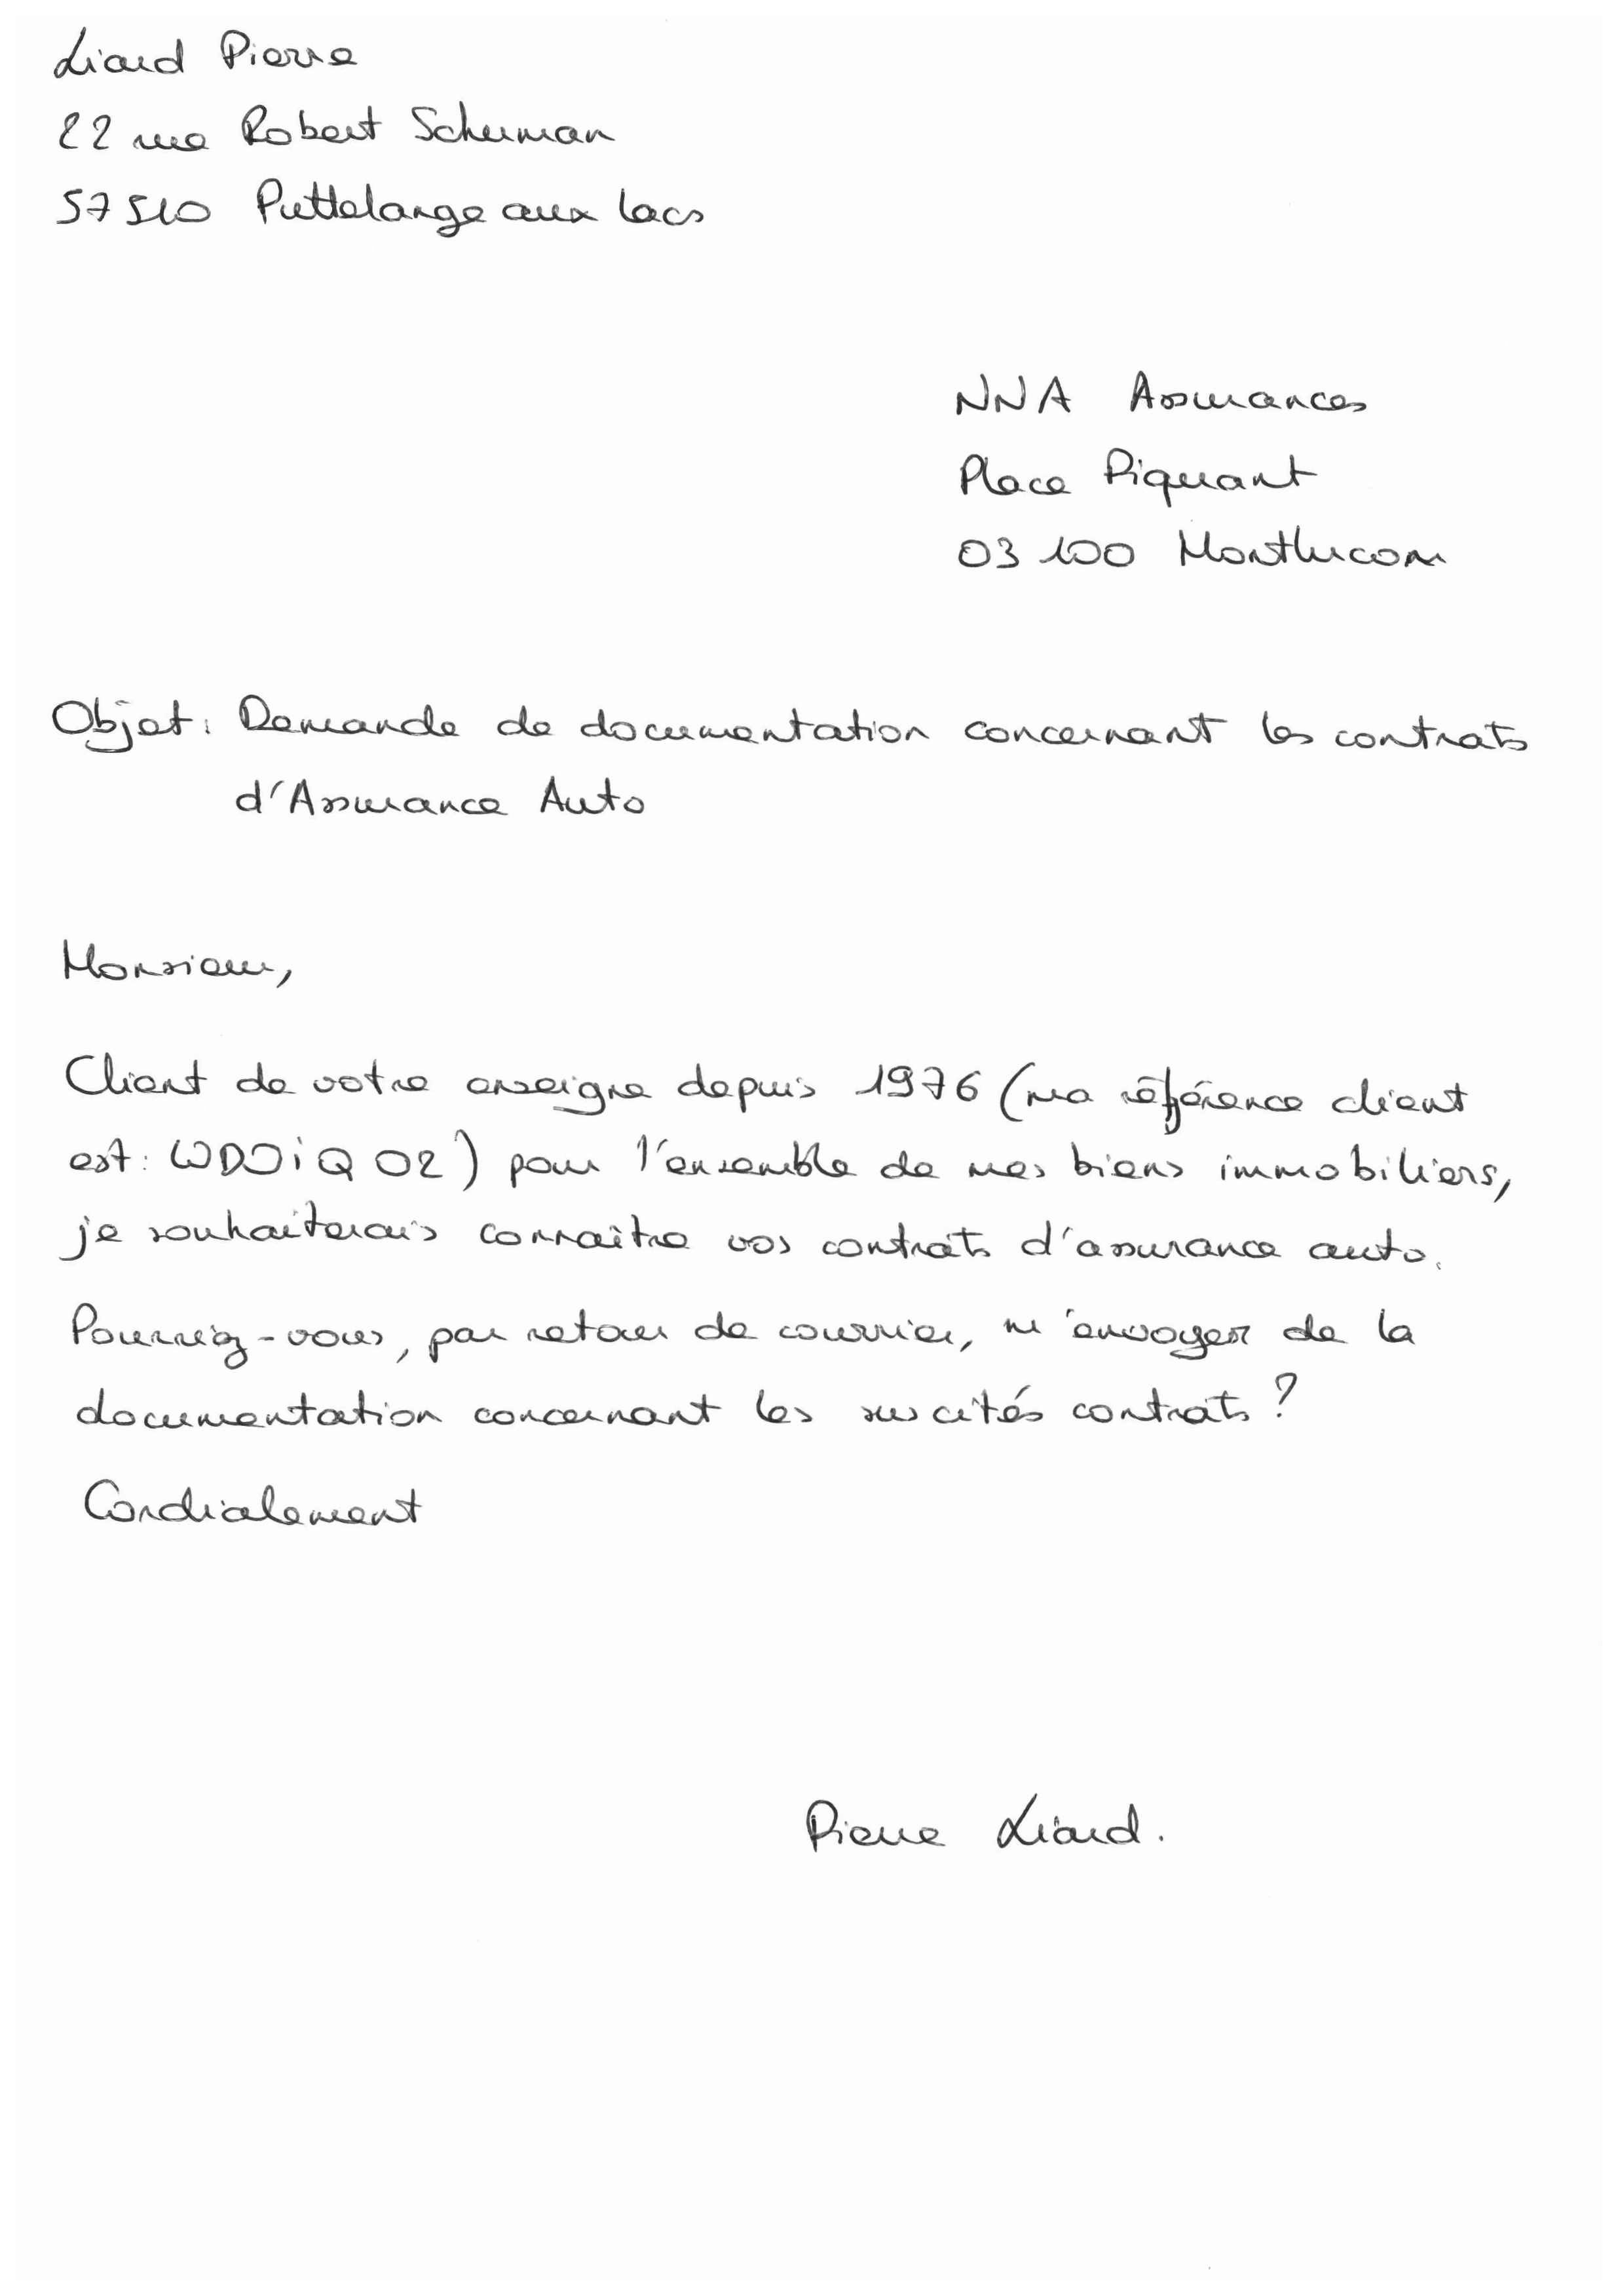 Liard Pierre
22 rue Robert Schuman
57510 Puttelange aux lacs
NNA Assurances
Place Piquant
03100 Montlucon
Objet: Demande de documentation concernant les contrats
d'Assurance Auto
Monsieur,
Client de votre enseigne depuis 1976 (ma référence client
est: WDOiQ02) pour l'ensemble de mes biens immobiliers,
je souhaiterais connaître vos contrats d'assurance auto.
Pourriez-vous, par retour de courrier, m'envoyer de la
documentation concernant les sus cités contrats ?
Cordialement
Pierre Liard.